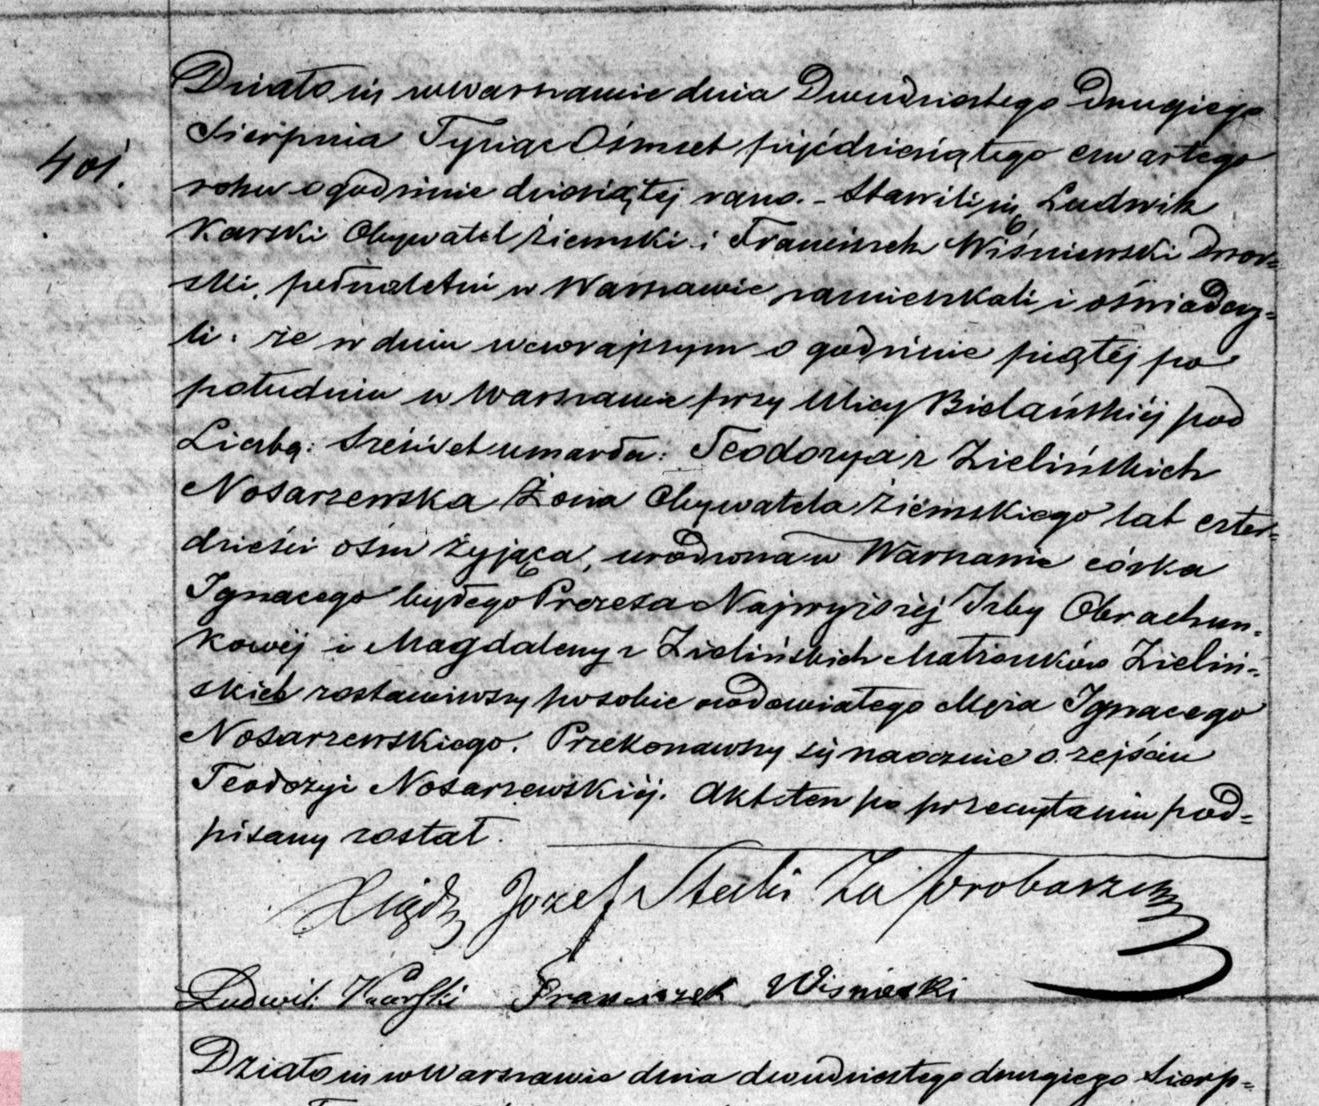 Działo się w Warszawie dnia Dwudziestego Drugiego
Sierpnia Tysiąc Ośmset pięćdziesiątego czwartego
401.
roku o godzinie dziesiątej rano. – Stawili się Ludwik
Karski Obywatel Ziemski i Franciszek Wiśniewski Dwor=
ski, pełnoletni w Warszawie zamieszkali i oświadczy=
li: że w dniu wczorajszym o godzinie piątej po
południu w Warszawie przy Ulicy Bielańskiéj pod
Liczbą: Sześćset umarła: Teodozya z Zielińskich
Nosarzewska Żona Obywatela Ziemskiego lat czter=
dzieści ośm żyjąca, urodzona w Warszawie córka
Ignacego byłego Prezesa Najwyższej Izby Obrachun=
kowéj i Magdaleny z Zielińskich Małżonków Zieliń=
skich zostawiwszy po sobie owdowiałego Męża Ignacego
Nosarzewskiego. Przekonawszy się naocznie o zejściu
Teodozyi Nosarzewskiéj. Akt ten po przeczytaniu pod=
pisany został.
Xiądz Jozef Stecki Za Proboszcza
Ludwik Karski Franciszek Wisnieski
Działo się w Warszawie dnia dwudziestego drugiego Sierp=